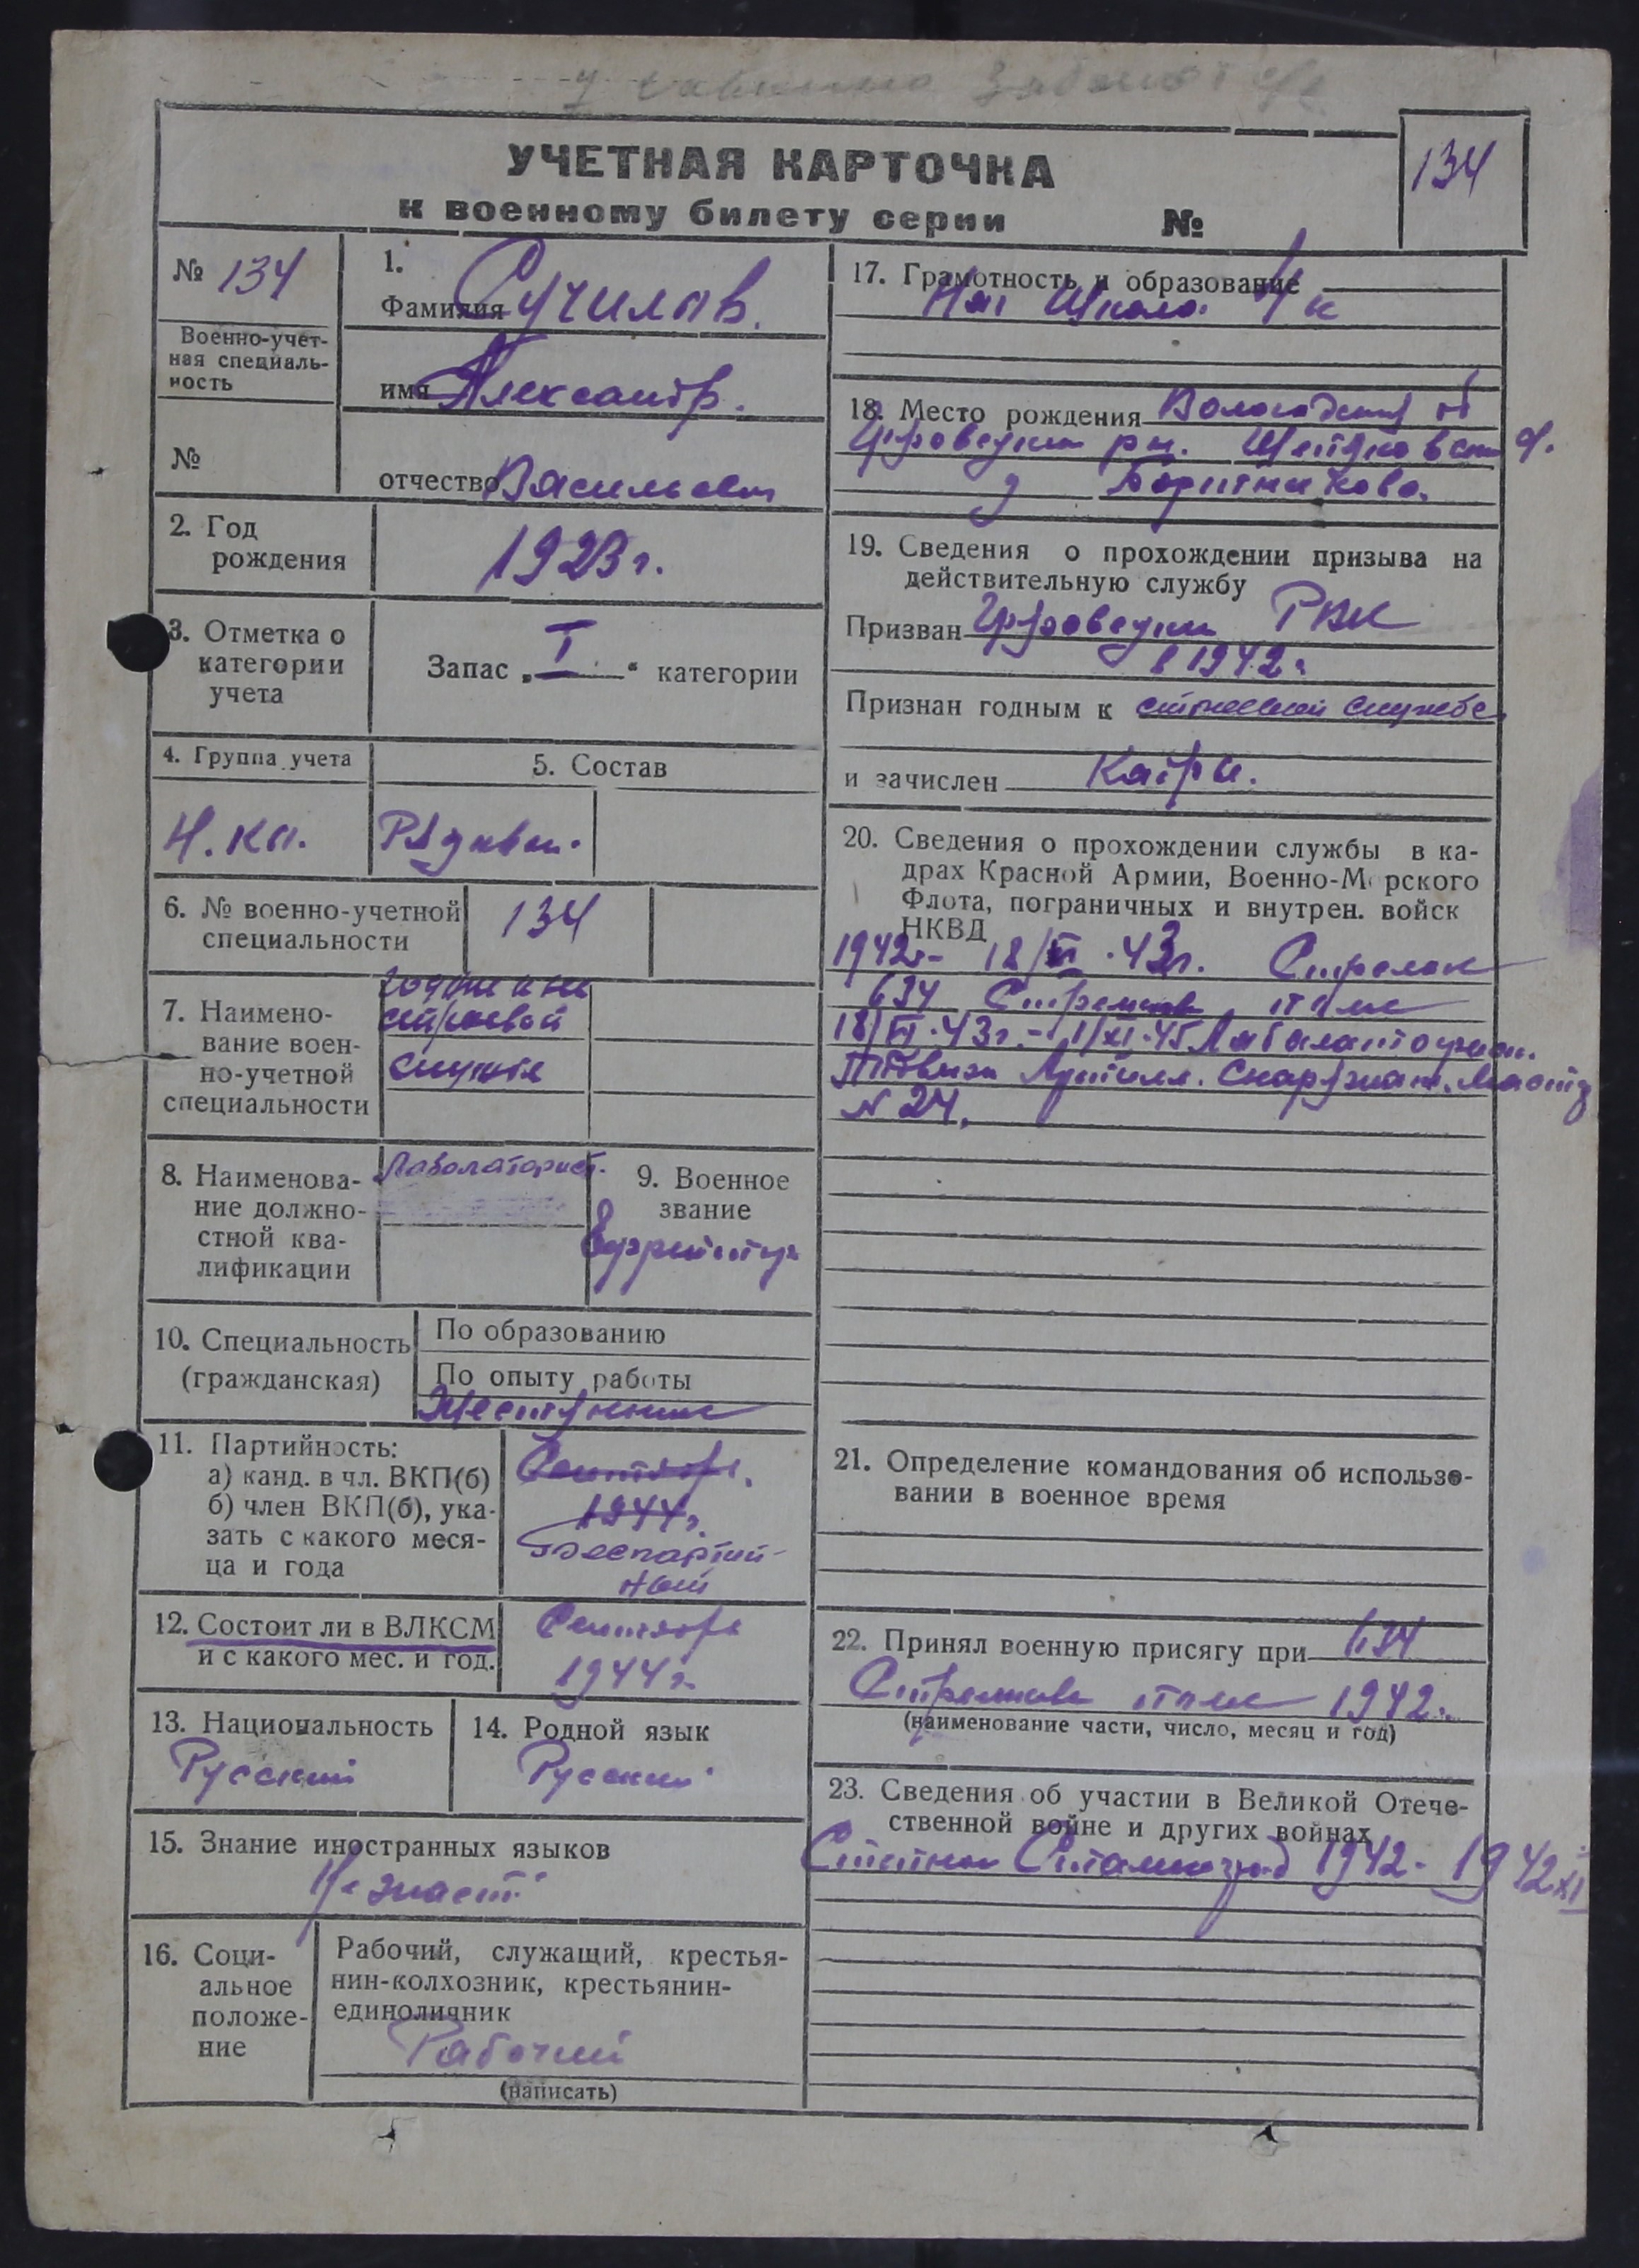 УЧЕТНАЯ КАРТОЧКА
к военному билету серии №
134
№ 134
Военно-учет-
ная специаль-
ность
№
1.
Фамилия Сучилов.
имя Александр.
отчество Васильевич
2. Год
рождения
1923 г.
3. Отметка о
категории
учета
Запас „I“ категории
4. Группа учета
5. Состав
Рядовой.
6. № военно-учетной
специальности
134
7. Наимено-
вание воен-
но-учетной
специальности
строевой
службе
8. Наименова-
ние должно-
стной ква-
лификации
Лаболаторист.
9. Военное
звание
10. Специальность
(гражданская)
По образованию
По опыту работы
11. Партийность:
а) канд. в чл. ВКП(б)
б) член ВКП(б), ука-
зать с какого меся-
ца и года
Сентября.
1944 г.
Беспартий-
ный
12. Состоит ли в ВЛКСМ
и с какого мес. и год.
Сентября
1944 г.
13. Национальность
Русский
14. Родной язык
Русский
15. Знание иностранных языков
Не знает.
16. Соци-
альное
положе-
ние
Рабочий, служащий, крестья-
нин-колхозник, крестьянин-
единоличник
Рабочий
(написать)
17. Грамотность и образование
Нач Школа. 4 к
18. Место рождения Вологодская об
р-н.
д
19. Сведения о прохождении призыва на
действительную службу
Призван РВК
в 1942 г.
Признан годным к строевой службе
и зачислен
20. Сведения о прохождении службы в ка-
драх Красной Армии, Военно-Морского
Флота, пограничных и внутрен. войск
НКВД
1942 г- 18/VI.43г. Стрелок
634 Стрелков полк
18/VI.43г.- 1/XI.45
Артилл. Снаряжат. Мастер
N 24.
21. Определение командования об использо-
вании в военное время
22. Принял военную присягу при 634
Стрелков полк 1942 г.
(наименование части, число, месяц и год)
23. Сведения об участии в Великой Отече-
ственной войне и других войнах
Сталинград 1942 - 1942 XI